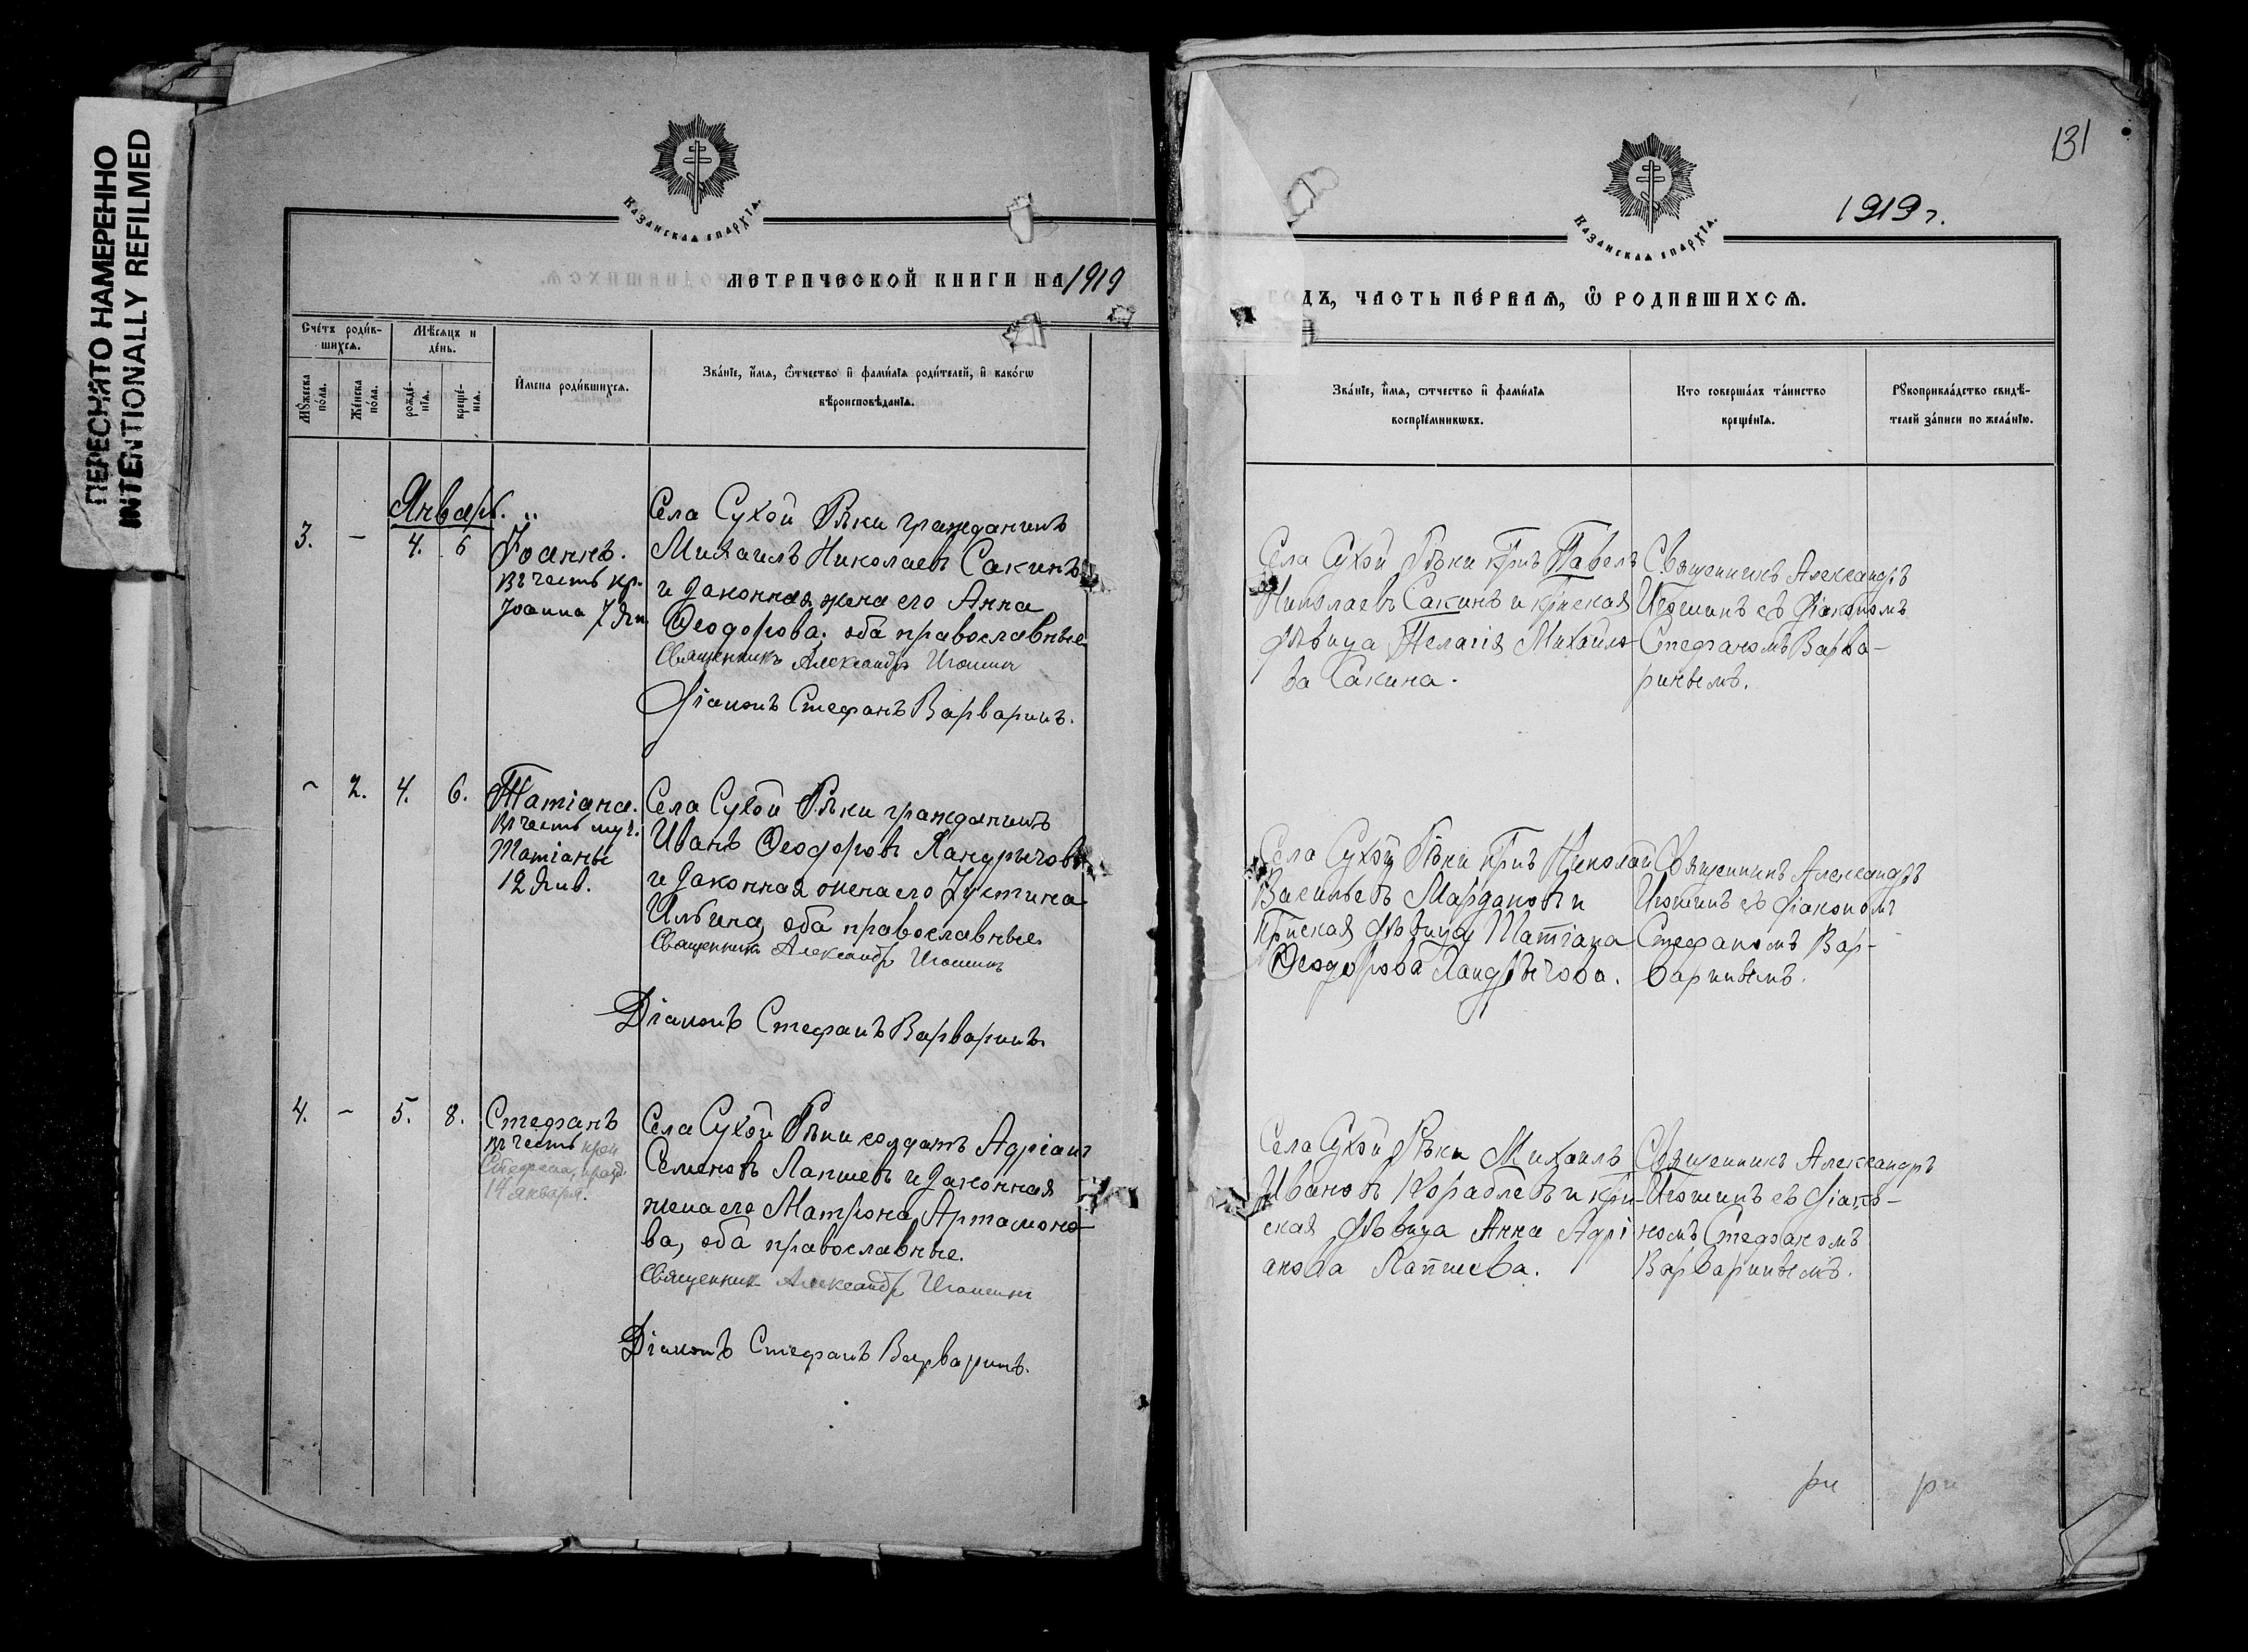 ПЕРЕСНЯТО НАМЕРЕННО
INTENTIONALLY REFILMED
КАЗАНСКАѦ ЕПАРХІѦ.
МЕТРИЧЕСКОЙ КНИГИ НА 1919
Сче́тъ роди́в-
шихсѧ.
Мѣ́сѧцъ и
де́нь.
Мꙋ́жеска
по́ла.
Же́нска
по́ла.
рожде́-
нїѧ.
креще́-
нїѧ.
И҆мена роди́вшихсѧ.
Зва́нїе, и҆́мѧ, ѻ҆́тчество и҆ фами́лїѧ роди́телей, и҆ како́гѡ
вѣроисповѣ́данїѧ.
Январь.
3.
-
4.
6
Іоаннъ.
Въ честь кр.
Іоанна 7 Ян.
Села Сухой Рѣки гражданинъ
Михаилъ Николаевъ Сакинъ
и законная жена его Анна
Ѳеодорова, оба православные
Священникъ Александръ Игошинъ
Діаконъ Стефанъ Варваринъ.
-
2.
4.
6.
Татіана.
Въ честь муч.
Татіаны
12 Янв.
Села Сухой Рѣки гражданинъ
Иванъ Ѳеодоровъ Ландрычовъ
и законная жена его Іустина
Ильина, оба православные.
Священникъ Александръ Игошинъ
Діаконъ Стефанъ Варваринъ.
4.
-
5.
8.
Стефанъ
въ честь
Стефана, празд.
14 января.
Села Сухой Рѣки солдатъ Адріанъ
Семеновъ Лапшевъ и законная
жена его Матрона Артамоно-
ва, оба православные.
Священник Александръ Игошинъ
Діаконъ Стефанъ Варваринъ.
131
КАЗАНСКАѦ ЕПАРХІѦ.
1919 г.
ГОДЪ, ЧАСТЬ ПЕ́РВАѦ, Ѡ҆ РОДИВШИХСѦ.
Зва́нїе, и҆́мѧ, ѻ҆тчество и҆ фами́лїѧ
воспрїе́мникѡвъ.
Кто соверша́лъ та́инство
креще́нїѧ.
Рꙋкоприкла́дство свидѣ́-
телей за́писи по жела́нїю.
Села Сухой Рѣки кр-нъ Павелъ
Николаевъ Сакинъ и кр-нская
дѣвица Пелагія Михайло-
ва Сакина.
Священникъ Александръ
Игошинъ съ діакономъ
Стефаномъ Варва-
ринымъ.
Села Сухой Рѣки кр-нъ Николай
Васильевъ Мардановъ и
кр-нская дѣвица Татіана
Ѳеодорова Ландрычова.
Священникъ Александръ
Игошинъ съ діакономъ
Стефаномъ Вар-
варинымъ.
Села Сухой Рѣки Михаилъ
Ивановъ Кораблевъ и кр-н-
ская дѣвица Анна Адрі
анова Лапшева.
Священникъ Александръ
Игошинъ съ діако-
номъ Стефаномъ
Варваринымъ.
ри ри